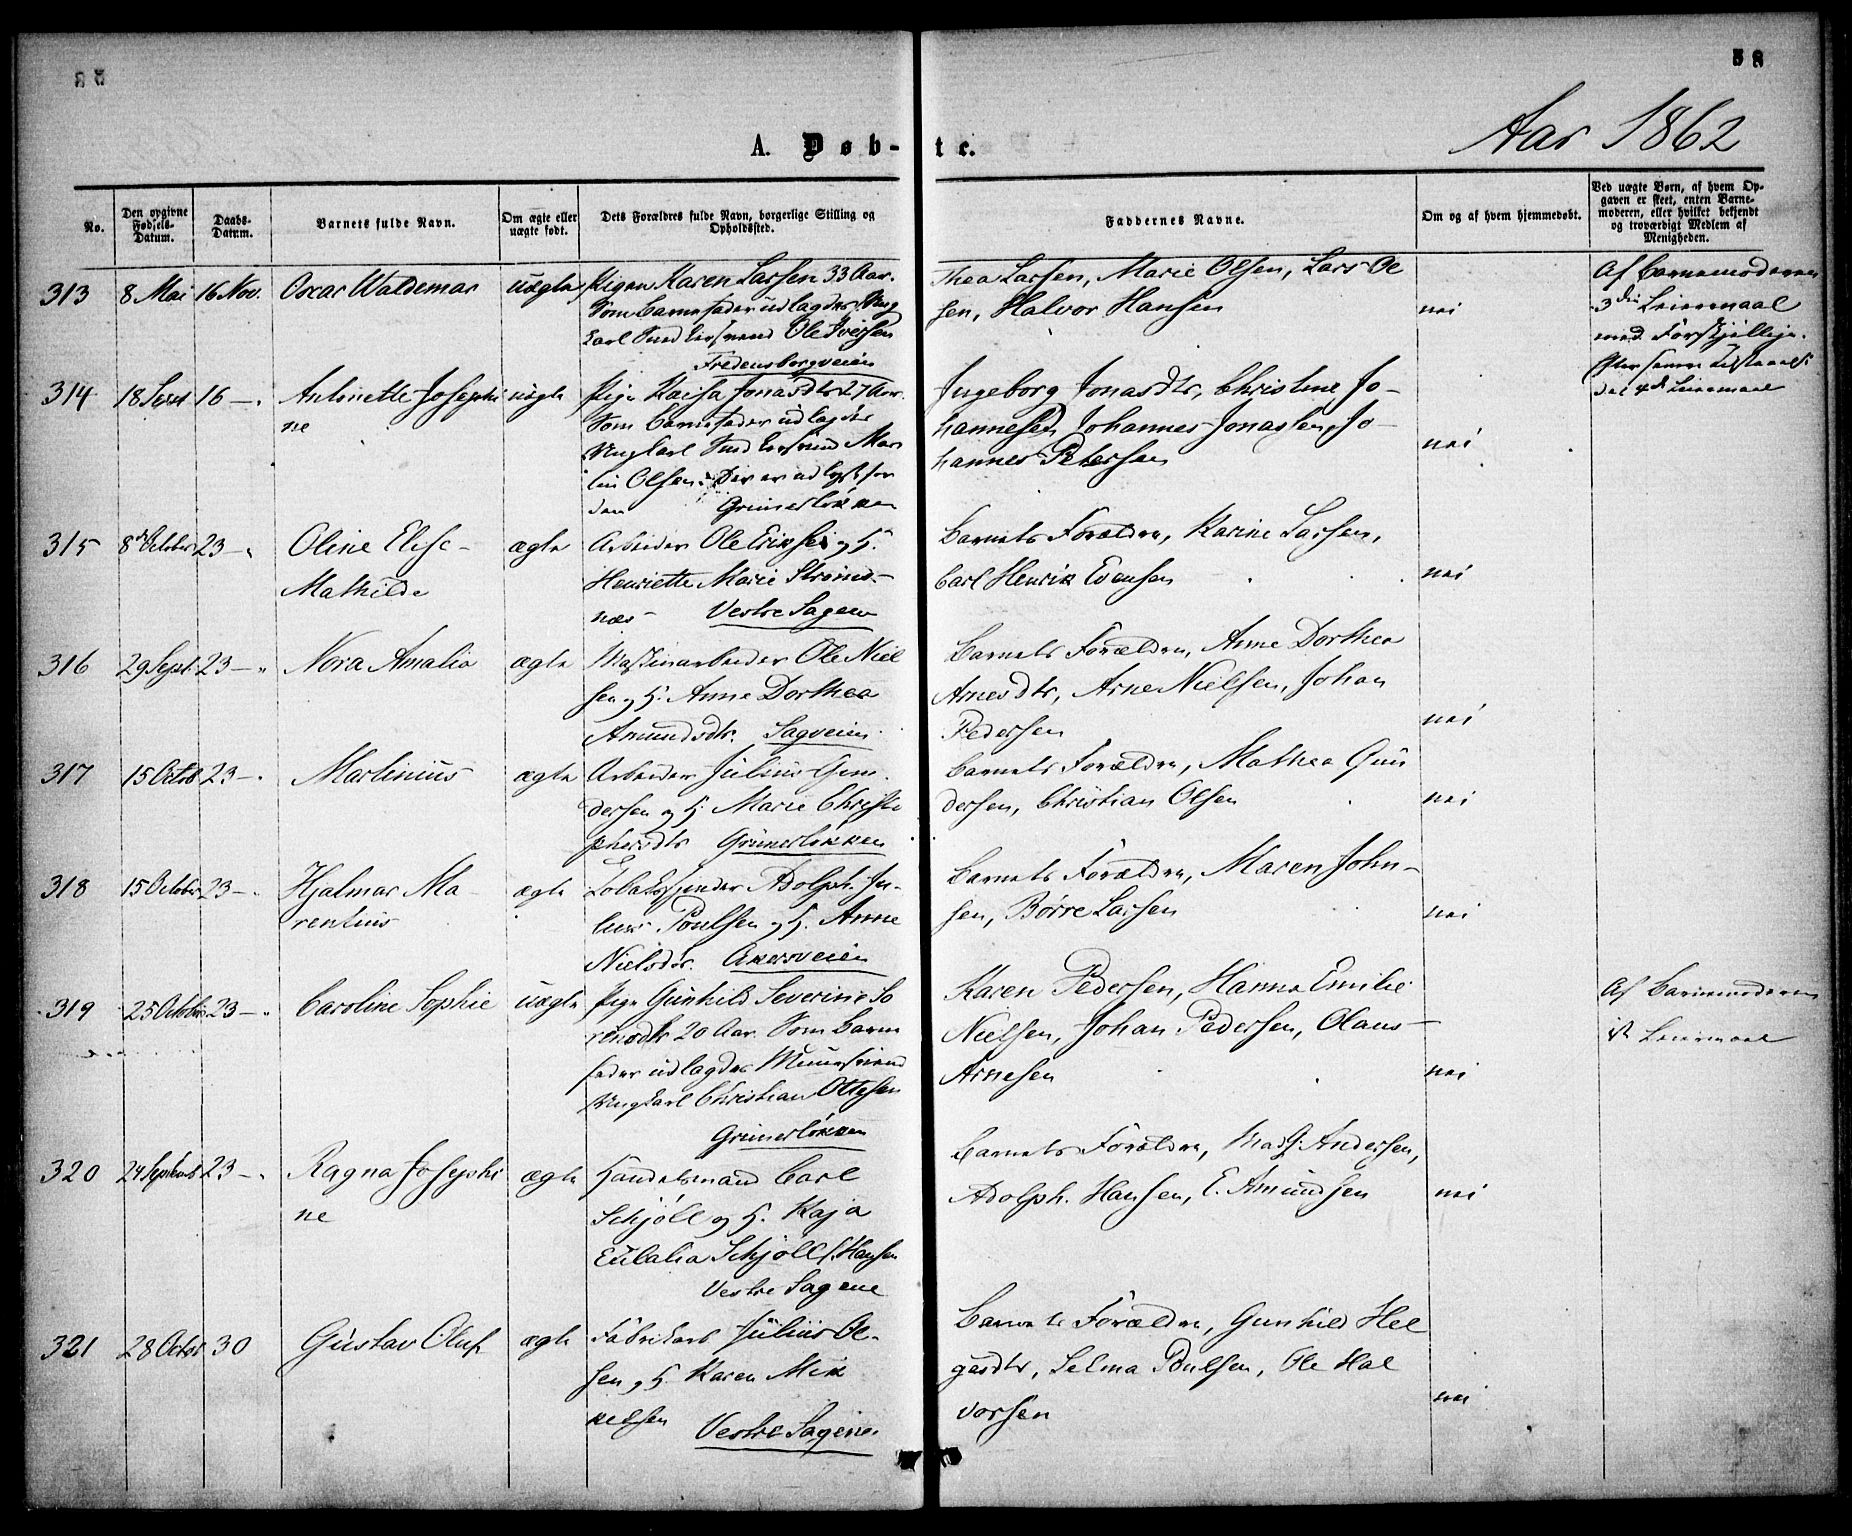 58
Aar 1862
A. Døbte.
No.
Den opgivne Fødsels-Datum.
Daabs-Datum.
Barnets fulde Navn.
Om ægte eller uægte født.
Dets Forældres fulde Navn, borgerlige Stilling og Opholdssted.
Faddernes Navne.
Om og af hvem hjemmedøbt.
Ved uægte Børn, af hvem Opgaven er skeet, enten Barnemoderen, eller hvilket bekjendt og troværdigt Medlem af Menigheden.
313 8 Mai 16 Nov. Oscar Waldemar uægte
Pigen Karen Larsen 33 Aar.
Som Barnefader udlagdes Ung
karl Ole Iversen
Fredensborgveien
Thea Larsen, Marie Olsen, Lars Ol
sen, Halvor Hansen
nei
Af Barnemoderen
3die Leiermaal
med Forskjellige.
314 18 16 — Antonette Josephi
ne
uægte
Pige Kaisa Jonasdtr 27 Aar.
Som Barnefader udlagdes
Ungkarl Mar
tin Olsen. Der er
Grünerløkken
Ingeborg Jonasdtr, Christine Jo-
hannesen, Johannes Jonassen, Jo-
hannes Petersen
nei
315 8de October 23 — Oline Elise
Mathilde
ægte
Arbeider Ole Eriksen og H.
Henriette Marie Strøms-
næs — Vestre Sagen
Barnets Forældre, Karine Larsen,
Carl Henrik Evensen
nei
316 29 Sept. 23 — Nora Amalia ægte
Maskinarbeider Ole Niel
sen og H. Anne Dorthea
Amundsdtr. Sagveien
Barnets Forældre, Anne Dorthea
Arnesdtr, Arne Nielsen, Johan
Pedersen
nei
317 15 Octob 23 — Martinius ægte
Arbeider Julius Gun
dersen og H. Marie Christo
phersdtr Grünerløkken
Barnets Forældre, Mathea Gun
dersen, Christian Olsen
nei
318 15 October 23 — Hjalmar Ma
rentius
ægte
Tobaksspinder Adolph Ju-
lius Poulsen og H. Anne
Nielsdtr. Akersveien
Barnets Forældre, Maren John-
sen, Børre Larsen
nei
319 25 October 23 — Caroline Sophie uægte
Pige Gunhild Severine So
rensdtr 20 Aar. Som Barne
fader udlagdes Muursvend
Ungkarl Christian Ottesen
Grünerløkken
Karen Pedersen, Hanna Emilie
Nielsen, Johan Pedersen, Olaus
Arnesen
nei
Af Barnemoderen
1st Leiermaal
320 24 Septemb 23 — Ragna Josephi
ne
ægte
Handelsmand Carl
Schjöll og H. Kaja
Eulalia Schjöll f. Hansen
Vestre Sagene
Barnets Forældre, Mad. G. Andersen,
Adolph. Hansen, E. Amundsen
nei
321 28 Octob 30 Gustav Oluf ægte
Fabrikarb Julius Ol-
sen og H. Karen Mik
kelsen
Vestre Sagene.
Barnets Forældre, Gunhild Hel
gesdtr, Selma Poulsen, Ole Hal
vorsen
nei